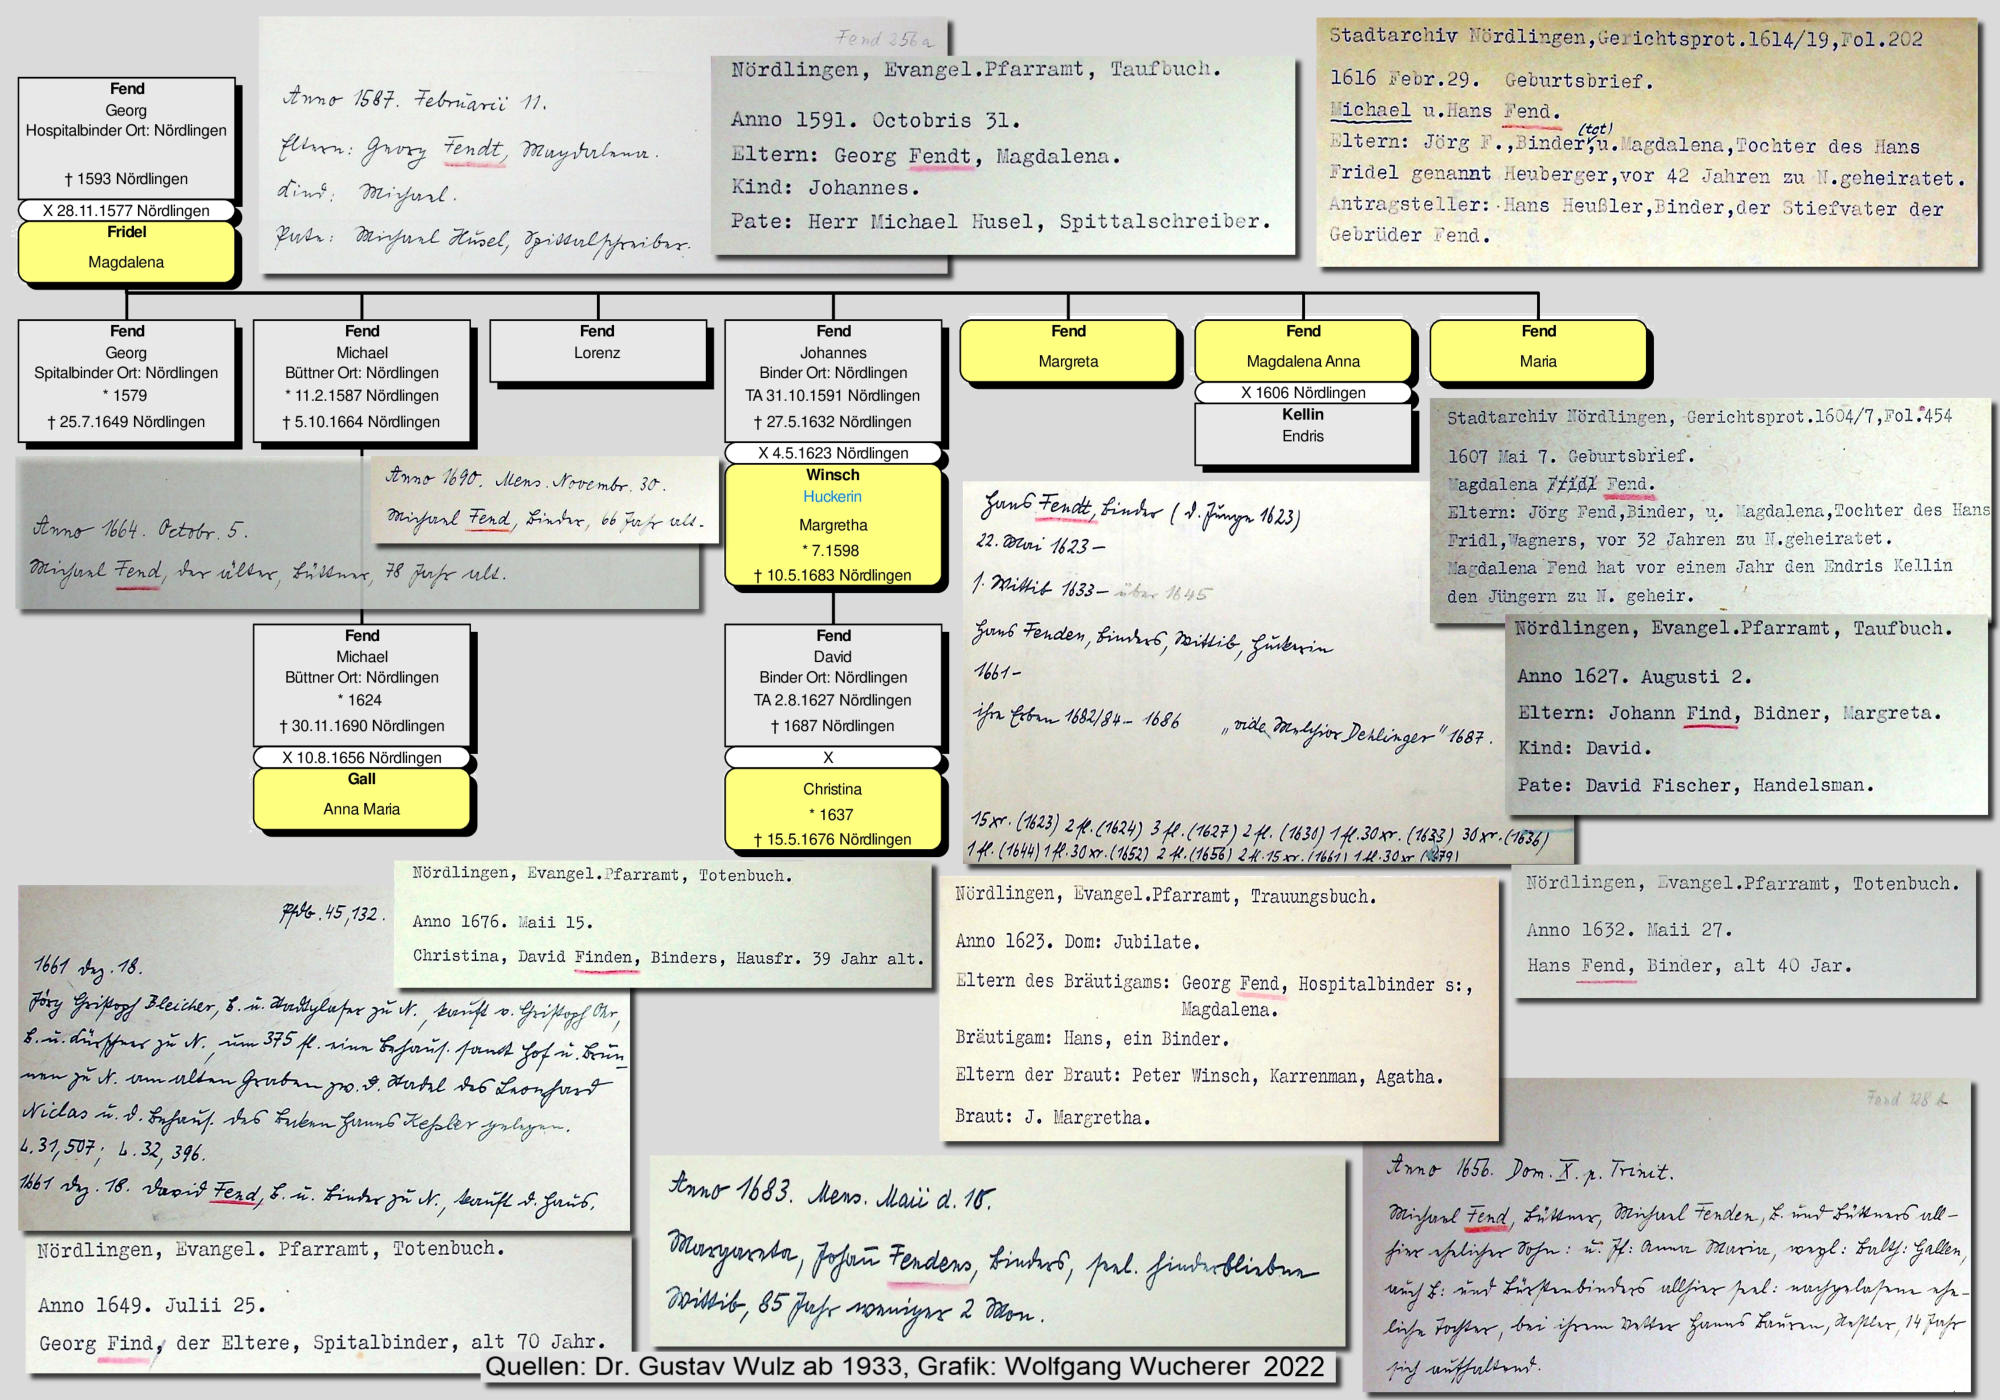 Fend
Georg
Hospitalbinder Ort: Nördlingen
† 1593 Nördlingen
X 28.11.1577 Nördlingen
Fridel
Magdalena
Fend 256a
Anno 1587. Februarii 11.
Eltern: Georg Fendt, Magdalena.
Kind: Michael.
Pate: Michael Husel, Spittalschreiber.
Nördlingen, Evangel.Pfarramt, Taufbuch.
Anno 1591. Octobris 31.
Eltern: Georg Fendt, Magdalena.
Kind: Johannes.
Pate: Herr Michael Husel, Spittalschreiber.
Stadtarchiv Nördlingen,Gerichtsprot.1614/19,Fol.202
1616 Febr.29. Geburtsbrief.
Michael u.Hans Fend.
(tot)
Eltern: Jörg F.,Binder,u.Magdalena,Tochter des Hans
Fridel genannt Heuberger,vor 42 Jahren zu N.geheiratet.
Antragsteller: Hans Heußler,Binder,der Stiefvater der
Gebrüder Fend.
Fend
Georg
Spitalbinder Ort: Nördlingen
* 1579
† 25.7.1649 Nördlingen
Fend
Michael
Büttner Ort: Nördlingen
* 11.2.1587 Nördlingen
† 5.10.1664 Nördlingen
Fend
Lorenz
Fend
Johannes
Binder Ort: Nördlingen
TA 31.10.1591 Nördlingen
† 27.5.1632 Nördlingen
X 4.5.1623 Nördlingen
Winsch
Huckerin
Margretha
* 7.1598
† 10.5.1683 Nördlingen
Fend
Margreta
Fend
Magdalena Anna
X 1606 Nördlingen
Kellin
Endris
Fend
Maria
Anno 1664. Octobr. 5.
Michael Fend, der älter, Büttner, 78 Jahr alt.
Anno 1690. Mens. Novembr. 30.
Michael Fend, Binder, 66 Jahr alt.
Stadtarchiv Nördlingen, Gerichtsprot.1604/7,Fol.454
1607 Mai 7. Geburtsbrief.
Magdalena Fridl Fend.
Eltern: Jörg Fend,Binder, u. Magdalena,Tochter des Hans
Fridl,Wagners, vor 32 Jahren zu N.geheiratet.
Magdalena Fend hat vor einem Jahr den Endris Kellin
den Jüngern zu N. geheir.
Hans Fendt, Binder (d. Junge 1623)
22. Mai 1623 –
1. Wittib 1633 – über 1645
Hans Fenden, Binders, Wittib, Huckerin
1661 –
ihre Erben 1682/84 – 1686 „vide Melchior Dehlinger" 1687.
15 xr. (1623) 2 fl. (1624) 3 fl. (1627) 2 fl. (1630) 1 fl. 30 xr. (1633) 30 xr. (1636)
1 fl. (1644) 1 fl. 30 xr. (1652) 2 fl. (1656) 2 fl. 15 xr. (1661) 1 fl. 30 xr (1679)
Nördlingen, Evangel.Pfarramt, Taufbuch.
Anno 1627. Augusti 2.
Eltern: Johann Find, Bidner, Margreta.
Kind: David.
Pate: David Fischer, Handelsman.
Fend
Michael
Büttner Ort: Nördlingen
* 1624
† 30.11.1690 Nördlingen
X 10.8.1656 Nördlingen
Gall
Anna Maria
Fend
David
Binder Ort: Nördlingen
TA 2.8.1627 Nördlingen
† 1687 Nördlingen
X
Christina
* 1637
† 15.5.1676 Nördlingen
Pfdb. 45, 132.
1661 Dez. 18.
Jörg Christoph Bleicher, B. u. Stadtglaser zu N., kauft v. Christoph Ohr,
B. u. Kürschner zu N., um 375 fl. eine Behaus. samt Hof u. Brun-
nen zu N. am alten Graben zw. d. Stadel des Leonhard
Niclas u. d. Behaus. des Becken Hanns Keßler gelegen.
L. 31, 507; L. 32, 396.
1661 Dez. 18. David Fend, B. u. Binder zu N., kauft d. Haus.
Nördlingen, Evangel.Pfarramt, Totenbuch.
Anno 1676. Maii 15.
Christina, David Finden, Binders, Hausfr. 39 Jahr alt.
Nördlingen, Evangel.Pfarramt, Trauungsbuch.
Anno 1623. Dom: Jubilate.
Eltern des Bräutigams: Georg Fend, Hospitalbinder s:,
Magdalena.
Bräutigam: Hans, ein Binder.
Eltern der Braut: Peter Winsch, Karrenman, Agatha.
Braut: J. Margretha.
Nördlingen, Evangel.Pfarramt, Totenbuch.
Anno 1632. Maii 27.
Hans Fend, Binder, alt 40 Jar.
Nördlingen, Evangel. Pfarramt, Totenbuch.
Anno 1649. Julii 25.
Georg Find, der Eltere, Spitalbinder, alt 70 Jahr.
Anno 1683. Mens. Maii d. 10.
Margareta, Johan̄ Fendens, Binders, seel. hinderbliebne
Wittib, 85 Jahr weniger 2 Mon.
Fend 128 b
Anno 1656. Dom. X. p. Trinit.
Michael Fend, Büttner, Michael Fenden, B. und Büttners all-
hier ehelicher Sohn: u. Jf: Anna Maria, weyl: Balth: Gallen,
auch B: und Bürstenbinders allhier seel: nachgelasene ehe-
liche Tochter, bei ihrem Vetter Hanns Bauren, Nestler, 14 Jahr
sich auffhaltend.
Quellen: Dr. Gustav Wulz ab 1933, Grafik: Wolfgang Wucherer 2022